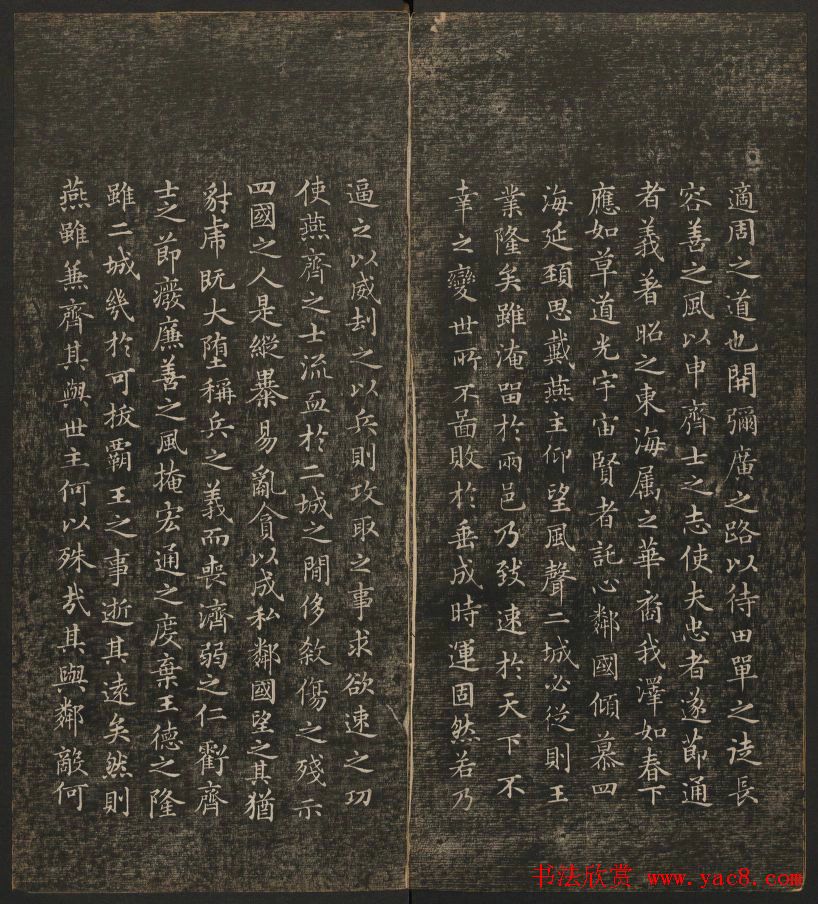 適周之道也開彌廣之路以待田單之徒長
容善之風以申齊士之志使夫忠者遂節通
者義著昭之東海属之華裔我澤如春下
應如草道光宇宙賢者託心鄰國傾慕四
海延頚思戴燕主仰望風聲二城必従則王
業隆矣雖淹留於兩邑乃致速於天下不
幸之變世所不啚敗於垂成時運固然若乃
逼之以威刦之以兵則攻取之事求欲速之功
使燕齊之士流血於二城之閒侈殺傷之残示
四國之人是縱暴易亂貪以成私鄰國望之其猶
豺虎既大堕稱兵之義而喪濟弱之仁虧齊
士之節癈廉善之風掩宏通之度棄王德之隆
雖二城幾於可拔霸王之事逝其遠矣然則
燕雖兼齊其與世主何以殊哉其與鄰敵何
书法欣赏 www.yac8.com